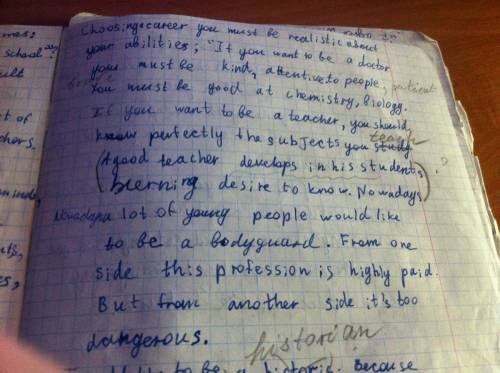 Choosing a career you must be realistic about
your abilities; "If you want to be a doctor
you must be kind, attentive to people, patient
You must be good at chemistry, biology.
If you want to be a teacher, you should
know perfectly the subjects you study teach
(A good teacher develops in his students ?
burning desire to know. Nowadays)
Nowadays a lot of young people would like
to be a bodyguard. From one
side this profession is highly paid.
But from another side it's too
dangerous.
historian
to be a historic. Because
school